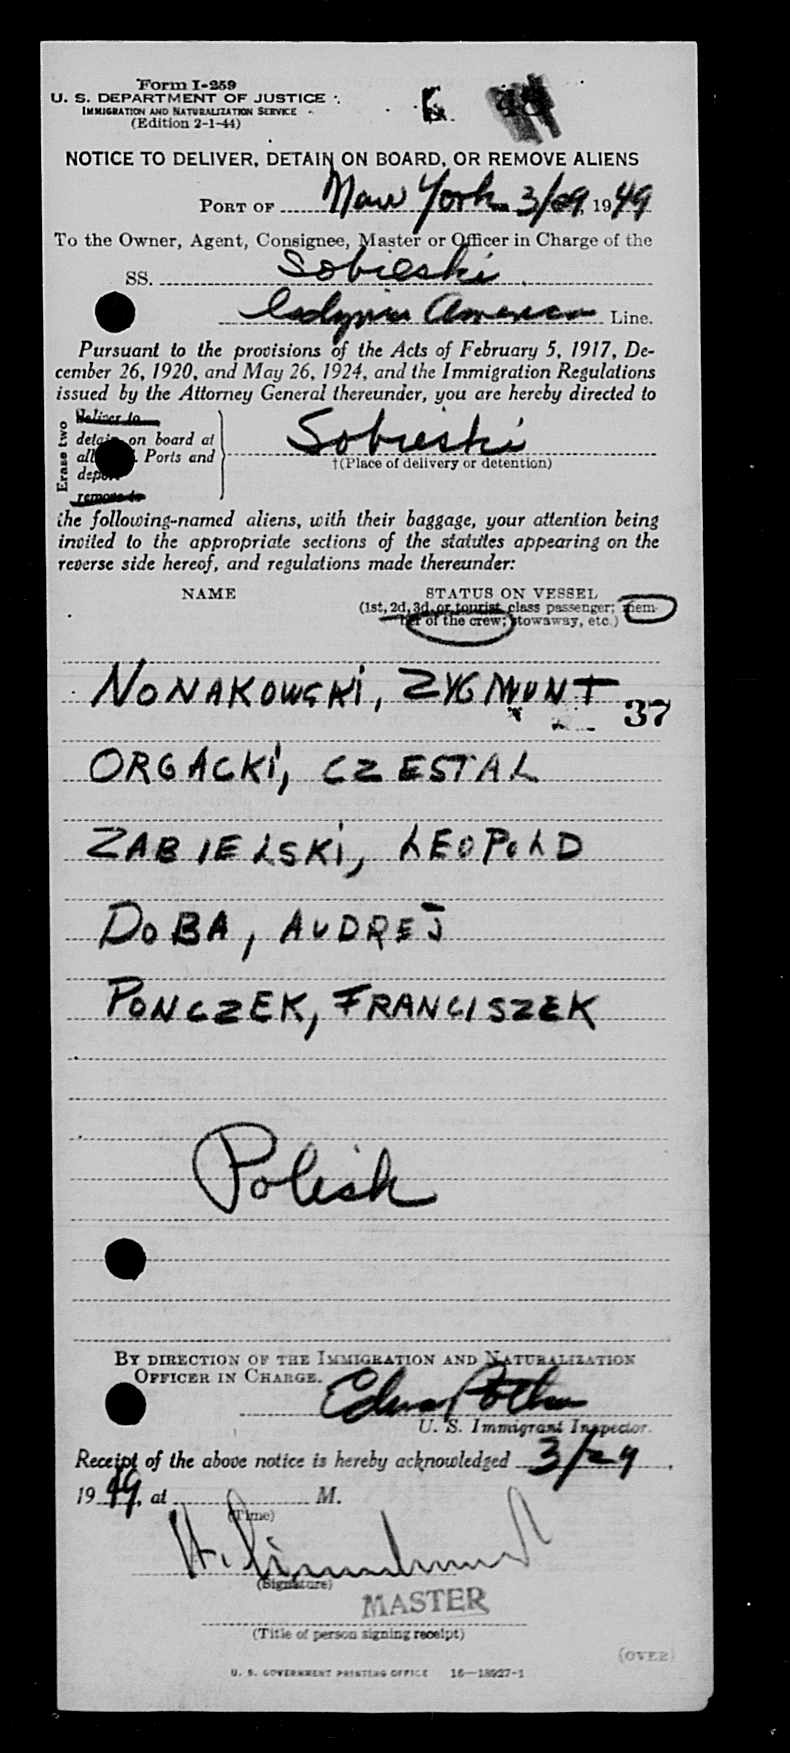 Form I-259
U. S. DEPARTMENT OF JUSTICE
IMMIGRATION AND NATURALIZATION SERVICE
(Edition 2-1-44)
NOTICE TO DELIVER, DETAIN ON BOARD, OR REMOVE ALIENS
PORT OF New York 3/29, 1949
To the Owner, Agent, Consignee, Master or Officer in Charge of the
SS. Sobieski
Gdynia America Line.
Pursuant to the provisions of the Acts of February 5, 1917, De-
cember 26, 1920, and May 26, 1924, and the Immigration Regulations
issued by the Attorney General thereunder, you are hereby directed to
Erase two
Deliver to
detain on board at
all Ports and
deport
remove to
Sobieski
†(Place of delivery or detention)
the following-named aliens, with their baggage, your attention being
invited to the appropriate sections of the statutes appearing on the
reverse side hereof, and regulations made thereunder:
NAME STATUS ON VESSEL
(1st, 2d, 3d, or tourist class passenger; mem-
ber of the crew; stowaway, etc.)
NONAKOWSKI, ZYGMUNT 37
ORGACKI, CZESTAL
ZABIELSKI, LEOPOLD
DOBA, AUDREJ
PONCZEK, FRANCISZEK
Polish
BY DIRECTION OF THE IMMIGRATION AND NATURALIZATION
OFFICER IN CHARGE.
U. S. Immigrant Inspector.
Receipt of the above notice is hereby acknowledged 3/29,
1949, at M.
(Time)
(Signature)
MASTER
(Title of person signing receipt)
(OVER)
U. S. GOVERNMENT PRINTING OFFICE 16—18927-1